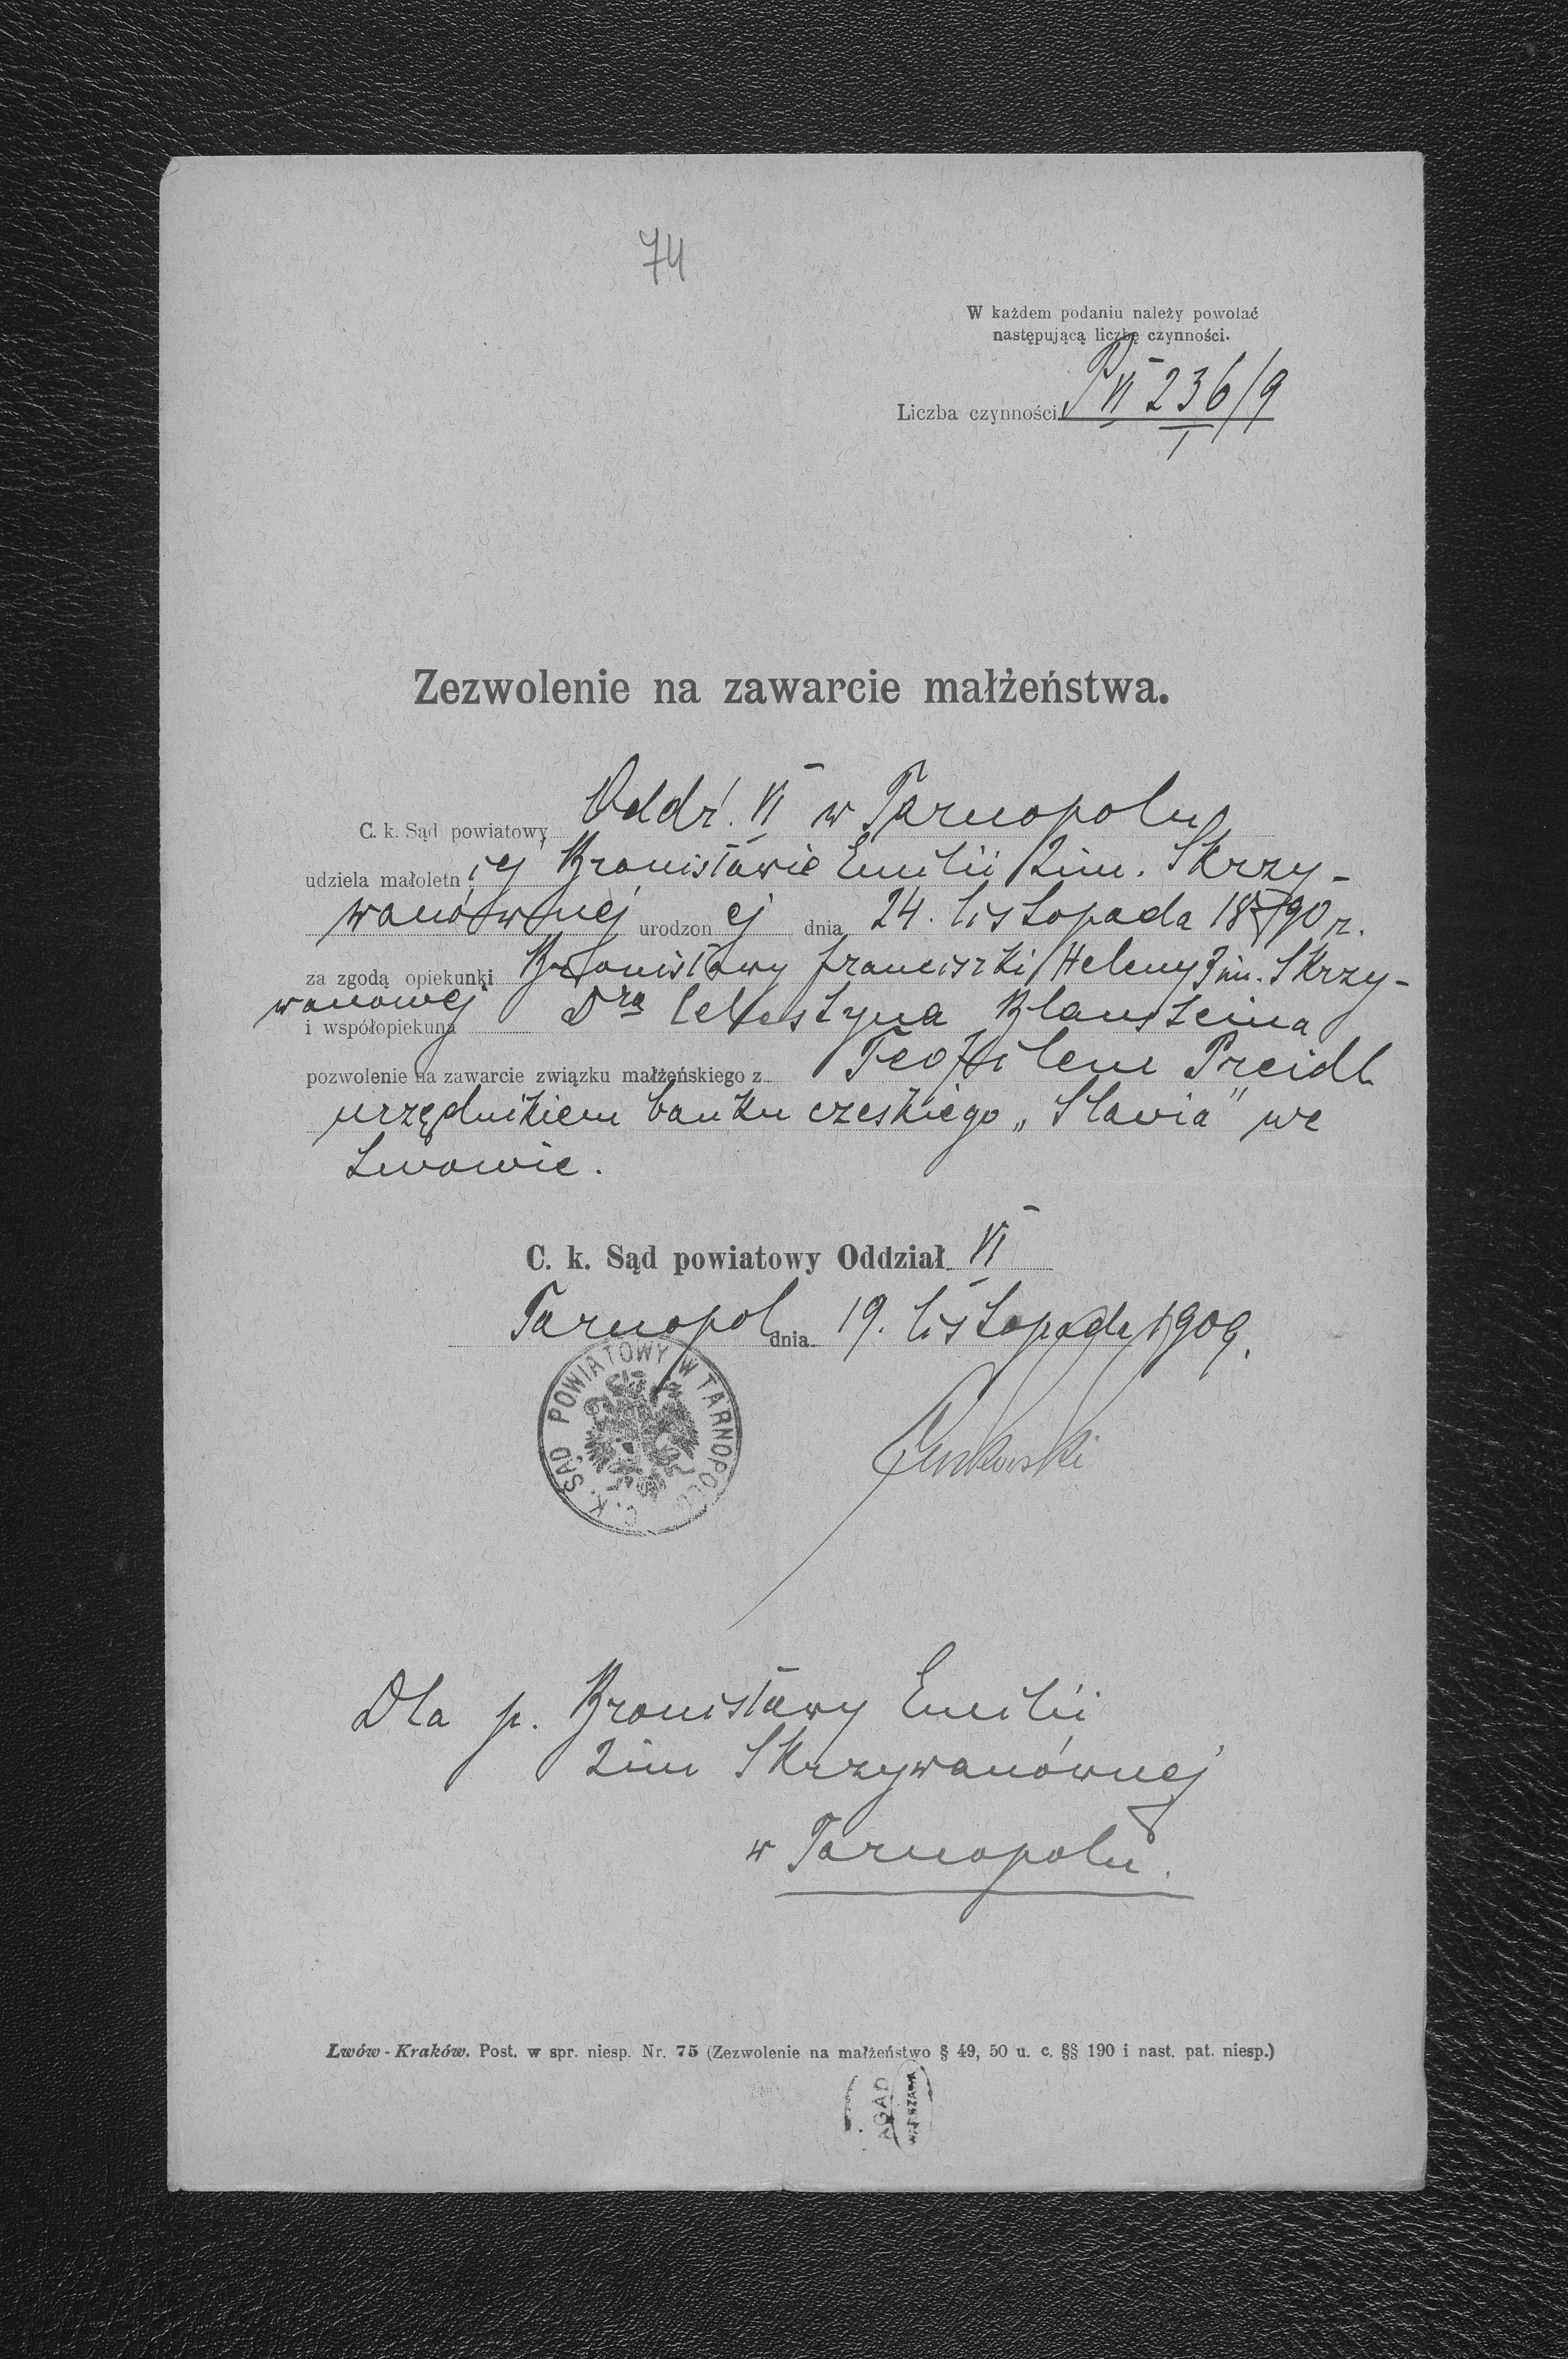 74
W każdem podaniu należy powołać
następującą liczbę czynności.
Liczba czynności P VI 236/9
1
Zezwolenie na zawarcie małżeństwa.
C. k. Sąd powiatowy Oddź. VI w Tarnopolu
udziela małoletn iej Bronisławie Emilii 2im. Skrzy-
wanównej urodzon ej dnia 24. listopada 1890 r.
za zgodą opiekunki Bronisławy Franciszki Heleny 3im. Skrzy-
wanowej
i współopiekuna Dra Celestyna Blausteina
pozwolenie na zawarcie związku małżeńskiego z Teofilem Preidl
urzędnikiem banku czeskiego „Slavia" we
Lwowie.
C. k. Sąd powiatowy Oddział VI
Tarnopol dnia 19. listopada 1909.
C. K. SĄD POWIATOWY W TARNOPOLU
Dla p. Bronisławy Emilii
2im Skrzywanównej
w Tarnopolu.
Lwów - Kraków. Post. w spr. niesp. Nr. 75 (Zezwolenie na małżeństwo § 49, 50 u. c. §§ 190 i nast. pat. niesp.)
AGAD
WARSZAWA